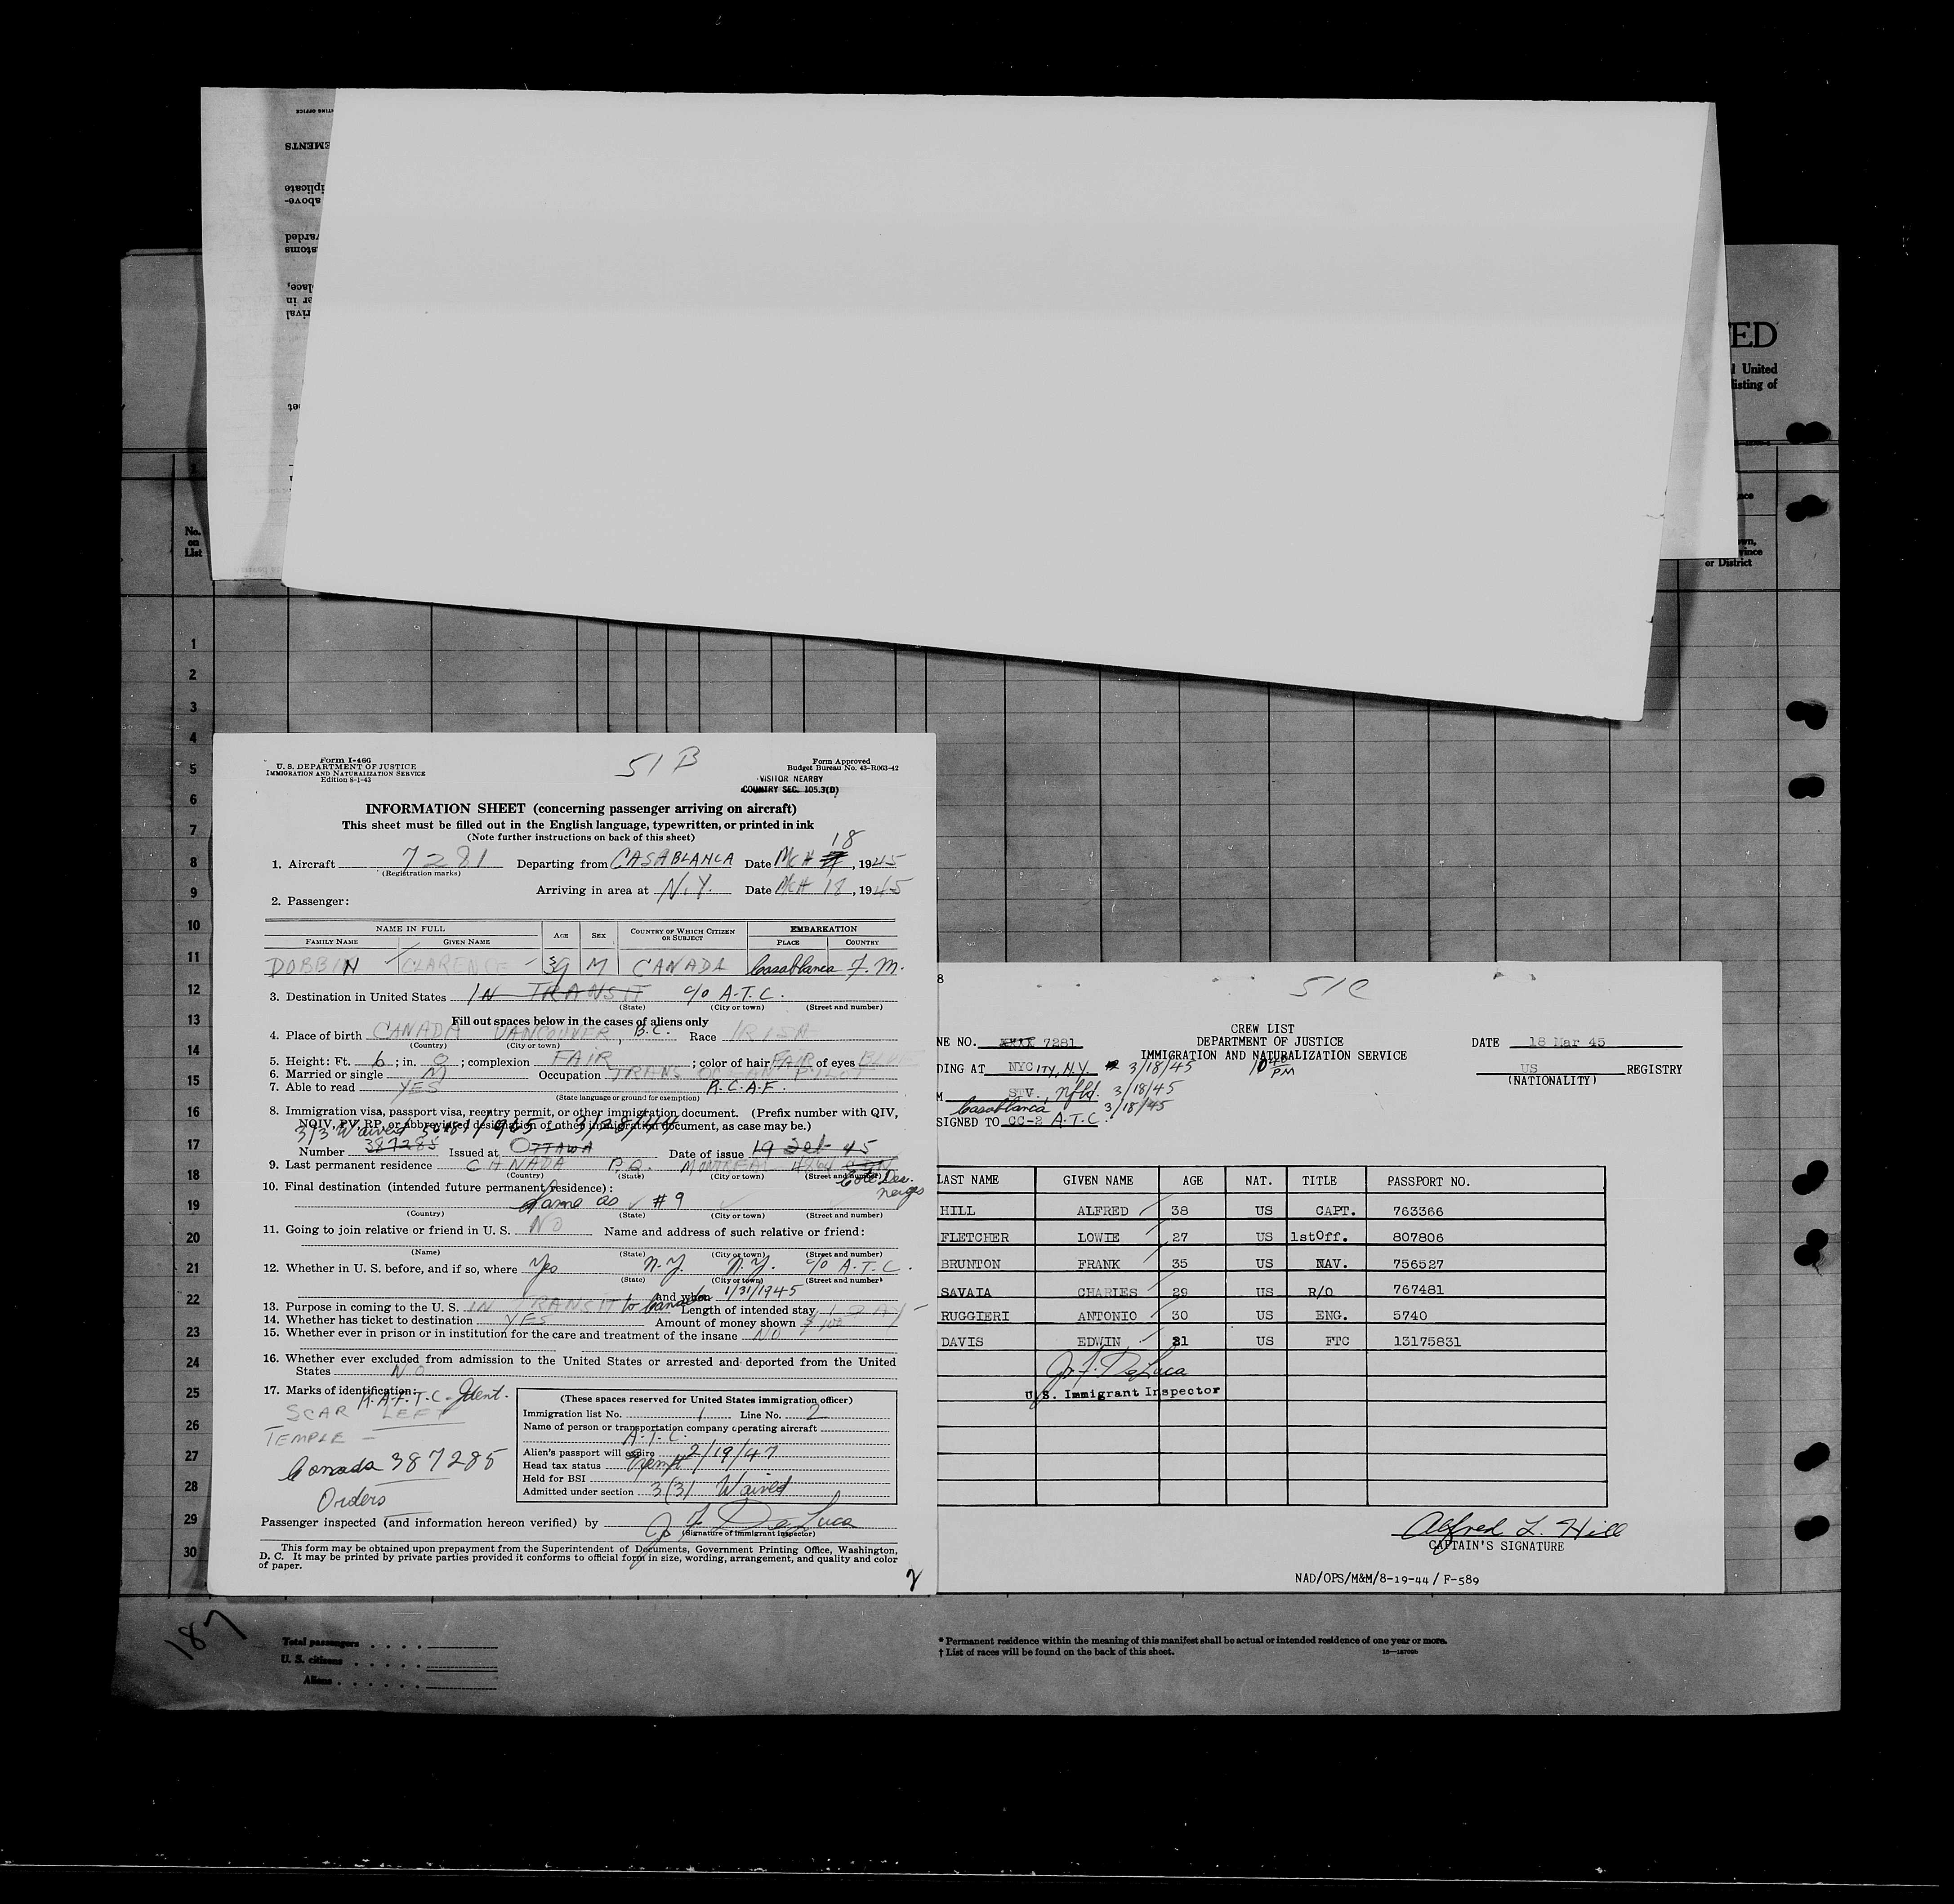 ED
United
isting of
No.
on
List
or District
1
2
3
4
5
6
7
8
9
10
11
12
13
14
15
16
17
18
19
20
21
22
23
24
25
26
27
28
29
30
Form I-466
U. S. DEPARTMENT OF JUSTICE
IMMIGRATION AND NATURALIZATION SERVICE
Edition 8-1-43
51 B
Form Approved
Budget Bureau No. 43-R063-42
VISITOR NEARBY
COUNTRY SEC. 105.3(D)
INFORMATION SHEET (concerning passenger arriving on aircraft)
This sheet must be filled out in the English language, typewritten, or printed in ink
(Note further instructions on back of this sheet)
1. Aircraft 7281 Departing from CASABLANCA Date MCH 18, 1945
(Registration marks)
Arriving in area at N.Y. Date MCH 18, 1945
2. Passenger:
NAME IN FULL AGE SEX COUNTRY OF WHICH CITIZEN OR SUBJECT EMBARKATION
FAMILY NAME GIVEN NAME PLACE COUNTRY
DOBBIN CLARENCE 39 M CANADA Casablanca F.M.
3. Destination in United States IN TRANSIT c/o A.T.C.
(State) (City or town) (Street and number)
Fill out spaces below in the cases of aliens only
4. Place of birth CANADA VANCOUVER, B.C. Race IRISH
(Country) (City or town)
5. Height: Ft. 6; in. 0; complexion FAIR; color of hair FAIR of eyes BLUE
6. Married or single M Occupation TRANS OCEAN PILOT
7. Able to read YES R.C.A.F.
(State language or ground for exemption)
8. Immigration visa, passport visa, reentry permit, or other immigration document. (Prefix number with QIV,
NQIV, PV, RP, or abbreviated designation of other immigration document, as case may be.)
3/3 Waived
Number 387285 Issued at OTTAWA Date of issue 19 45
9. Last permanent residence CANADA P.Q. MONTREAL Cote Des neiges
(Country) (State) (City or town) (Street and number)
10. Final destination (intended future permanent residence):
Same as #9
(Country) (State) (City or town) (Street and number)
11. Going to join relative or friend in U. S. NO Name and address of such relative or friend:
(Name) (State) (City or town) (Street and number)
12. Whether in U. S. before, and if so, where Yes N.Y. N.Y. c/o A.T.C.
(State) (City or town) (Street and number)
and when 1/31/1945
13. Purpose in coming to the U. S. IN TRANSIT to Canada Length of intended stay 1 DAY
14. Whether has ticket to destination YES Amount of money shown $
15. Whether ever in prison or in institution for the care and treatment of the insane NO
16. Whether ever excluded from admission to the United States or arrested and deported from the United
States NO
17. Marks of identification: R.A.F.T.C. Ident.
SCAR LEFT
TEMPLE -
Canada 387285
Orders
(These spaces reserved for United States immigration officer)
Immigration list No. 1 Line No. 2
Name of person or transportation company operating aircraft
A.T.C.
Alien's passport will expire 2/19/47
Head tax status Exempt
Held for BSI
Admitted under section 3(3) Waived
Passenger inspected (and information hereon verified) by J F DeLuca
(Signature of immigrant inspector)
This form may be obtained upon prepayment from the Superintendent of Documents, Government Printing Office, Washington,
D. C. It may be printed by private parties provided it conforms to official form in size, wording, arrangement, and quality and color
of paper.
2
8
51C
CREW LIST
DEPARTMENT OF JUSTICE
IMMIGRATION AND NATURALIZATION SERVICE
NE NO. 7281
DATE 18 Mar 45
DING AT NYCITY, N.Y. 3/18/45 10 40 PM
US REGISTRY
(NATIONALITY)
M STV., Nfld. 3/18/45
Casablanca 3/18/45
SIGNED TO CC-2 A.T.C.
LAST NAME GIVEN NAME AGE NAT. TITLE PASSPORT NO.
HILL ALFRED 38 US CAPT. 763366
FLETCHER LOWIE 27 US 1stOff. 807806
BRUNTON FRANK 35 US NAV. 756527
SAVAIA CHARLES 29 US R/O 767481
RUGGIERI ANTONIO 30 US ENG. 5740
DAVIS EDWIN 21 US FTC 13175831
J. F. DeLuca
U.S. Immigrant Inspector
Alfred L. Hill
CAPTAIN'S SIGNATURE
NAD/OPS/M&M/8-19-44 / F-589
187
Total passengers
U. S. citizens
Aliens
* Permanent residence within the meaning of this manifest shall be actual or intended residence of one year or more.
† List of races will be found on the back of this sheet.